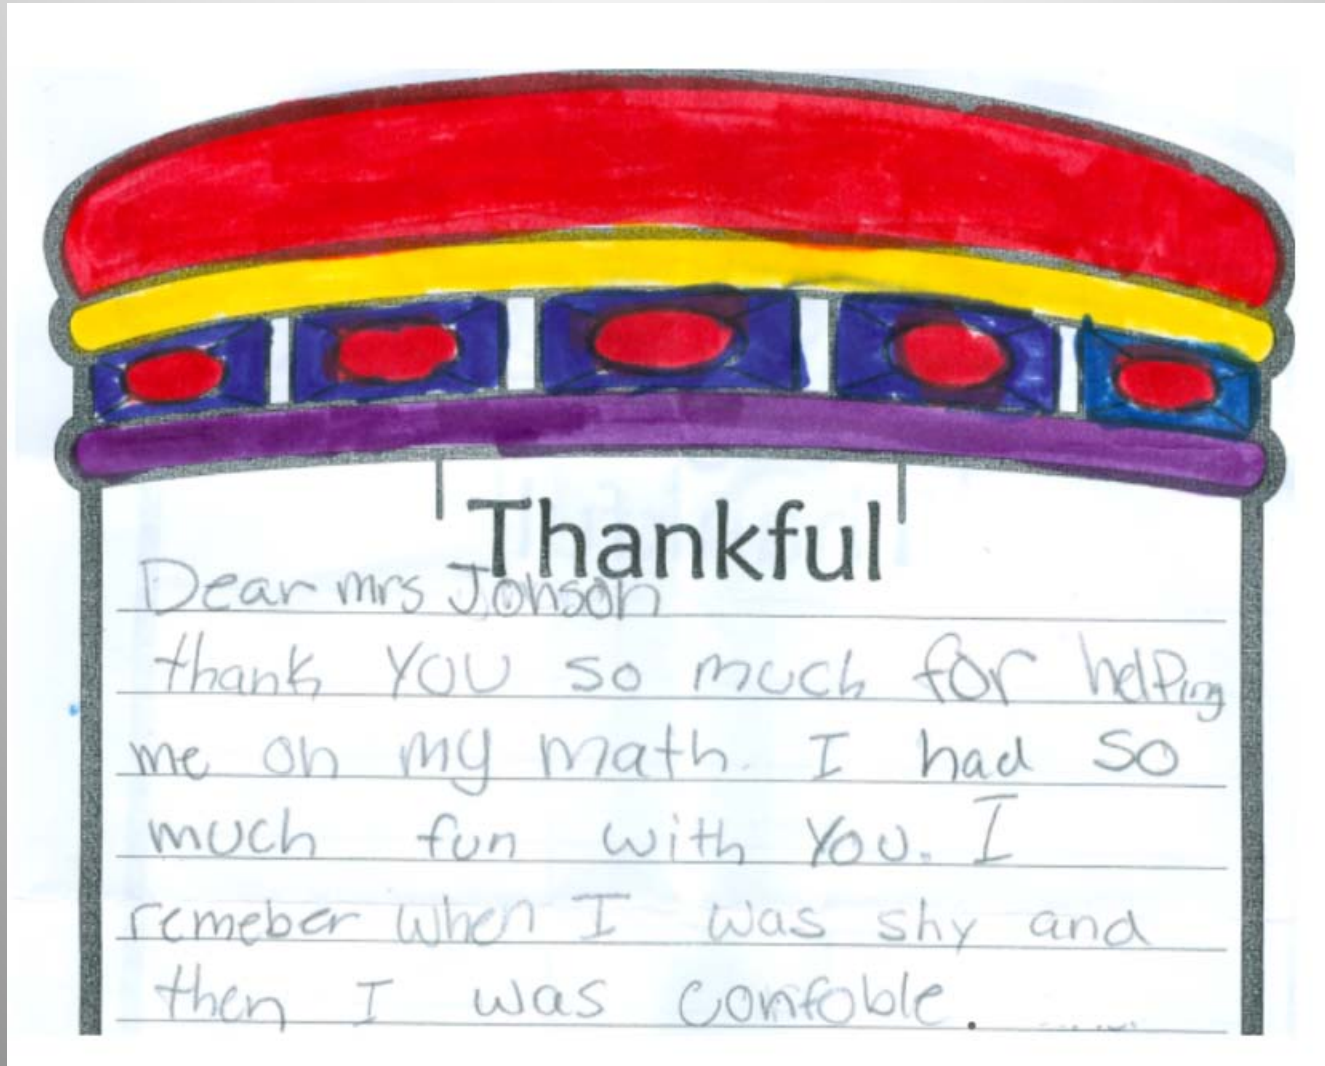 Thankful
Dear mrs Johson
thank you so much for helping
me on my math. I had so
much fun with you. I
remeber when I was shy and
then I was confoble.